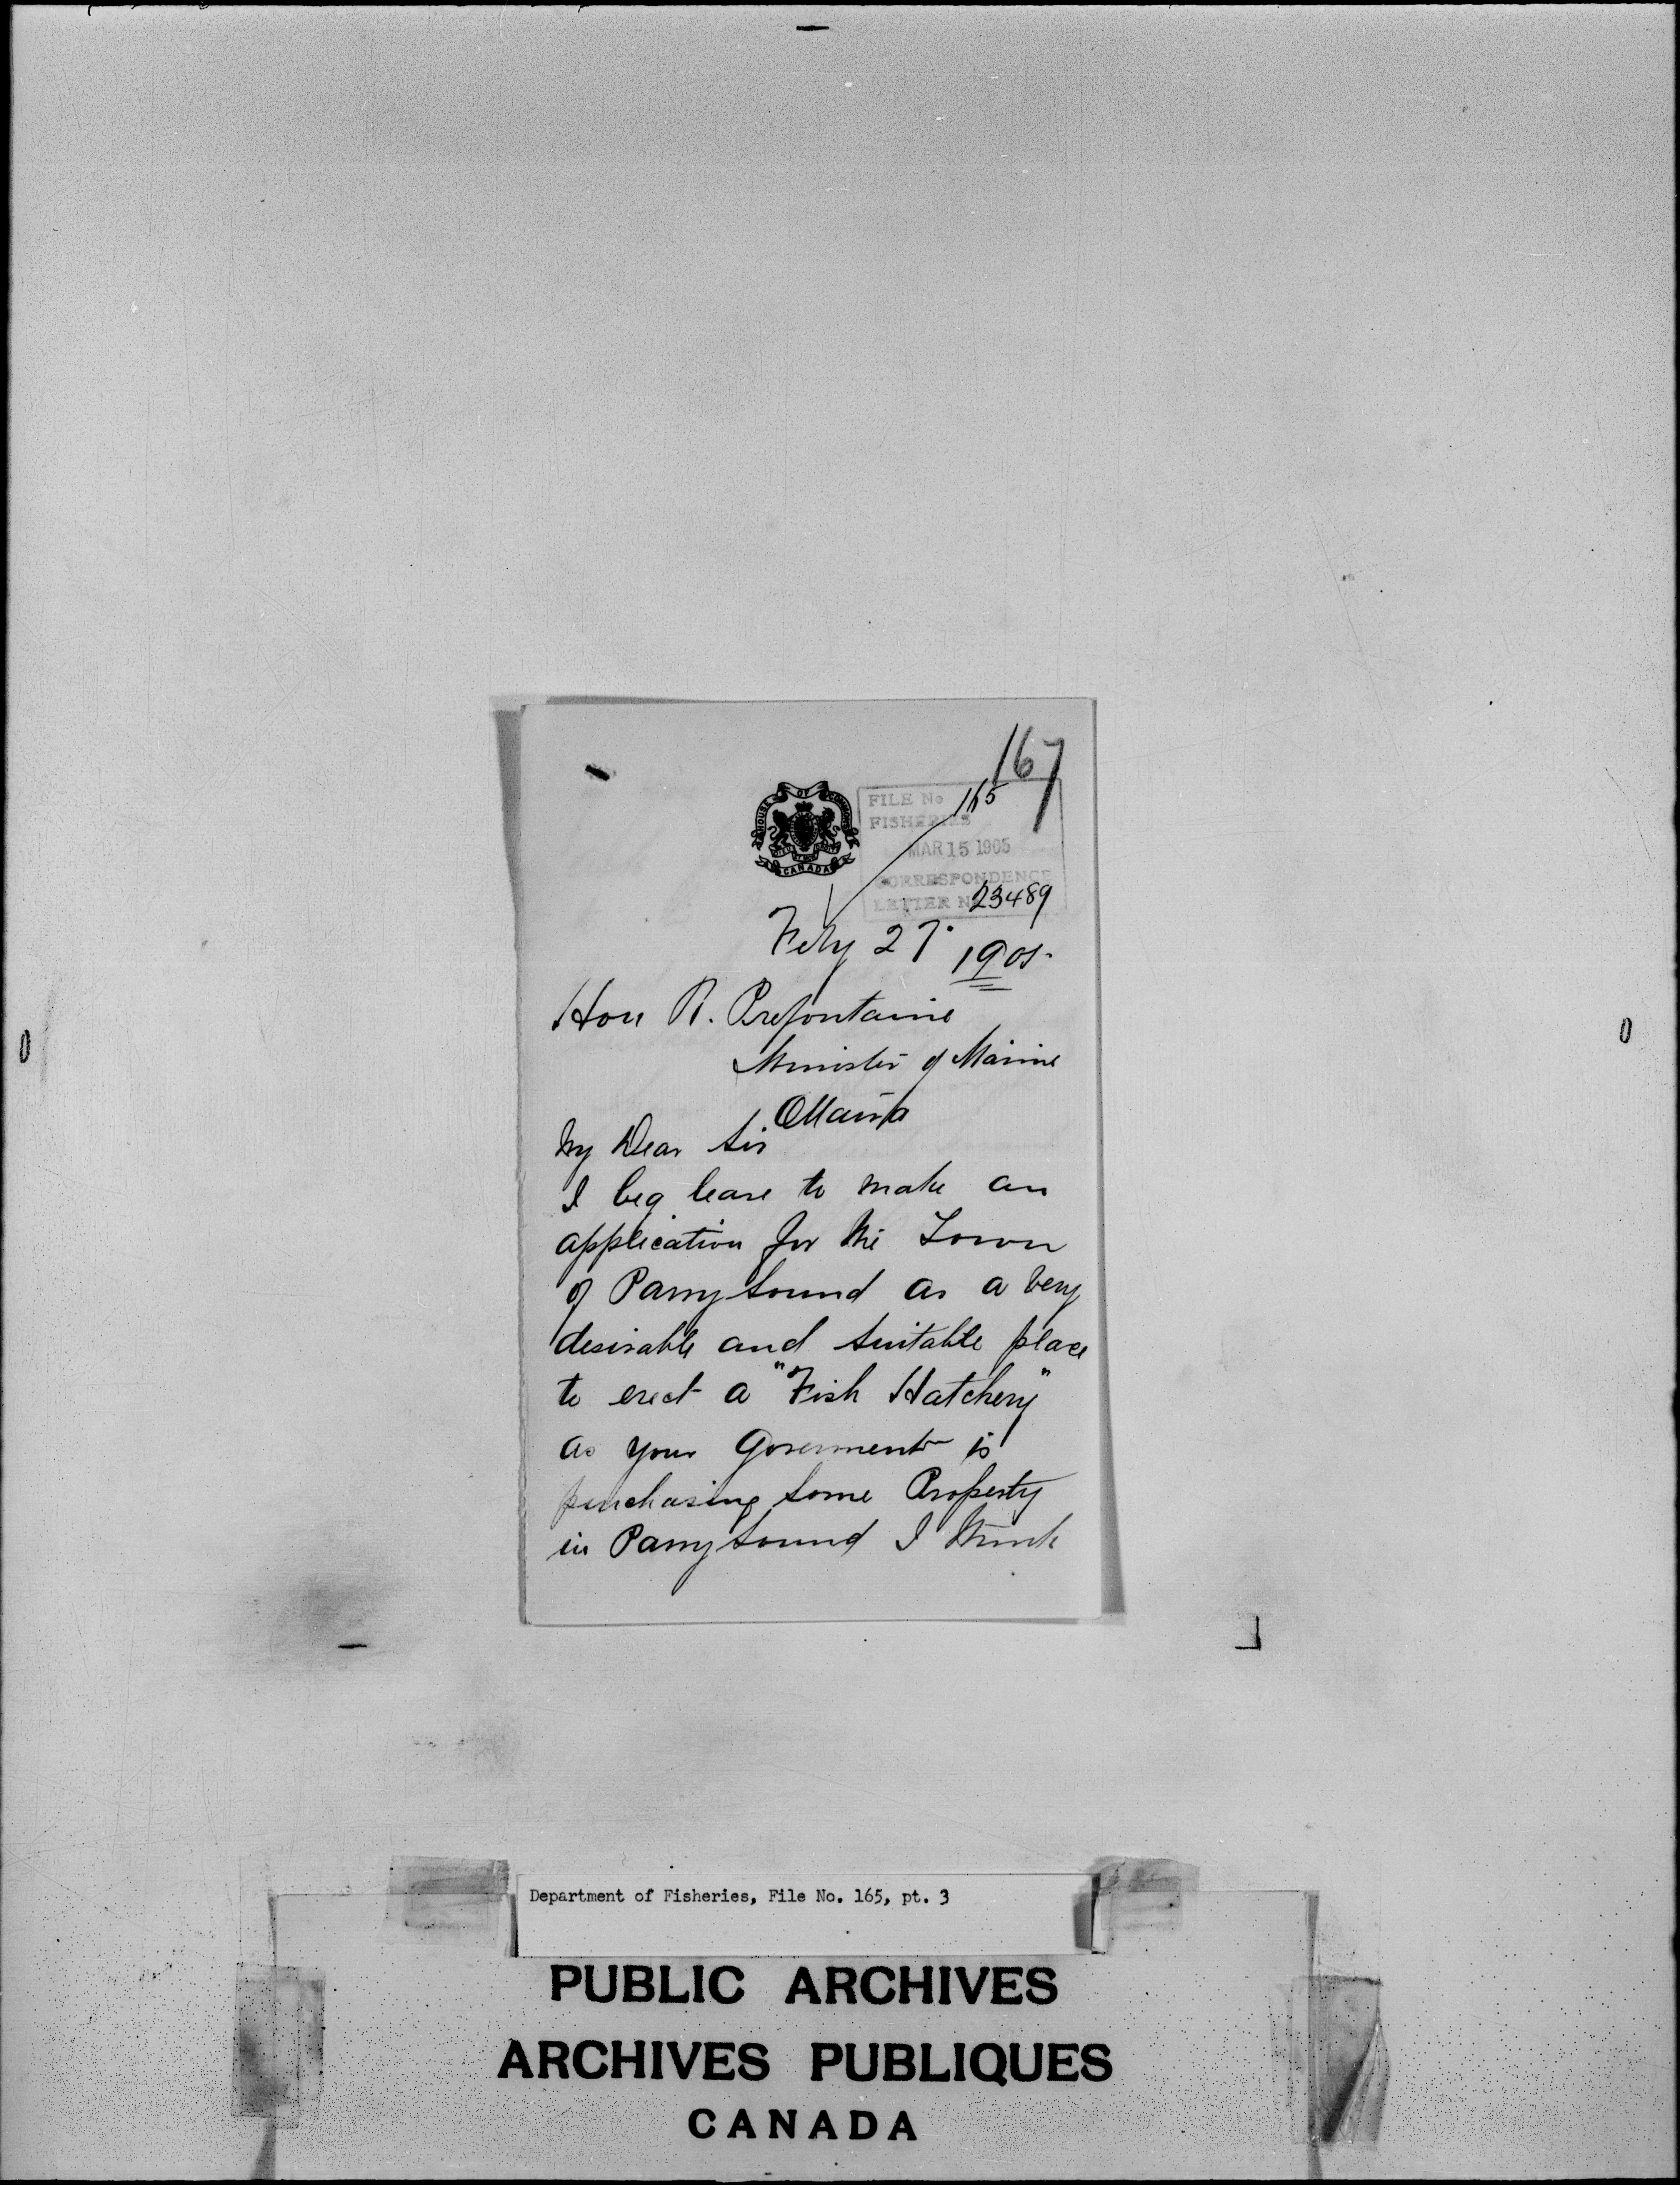 167
HOUSE OF COMMONS
CANADA
FILE No 165
FISHERIES
MAR 15 1905
CORRESPONDENCE
LETTER No 23489
Feby 27. 1905.
Hon R. Prefontaine
Minister of Marine
Ottawa
My Dear Sir
I beg leave to make an
application for the Town
of Parry Sound as a very
desirable and suitable place
to erect a "Fish Hatchery"
as your Goverment is
purchasing some Property
in Parry Sound I think
Department of Fisheries, File No. 165, pt. 3
PUBLIC ARCHIVES
ARCHIVES PUBLIQUES
CANADA